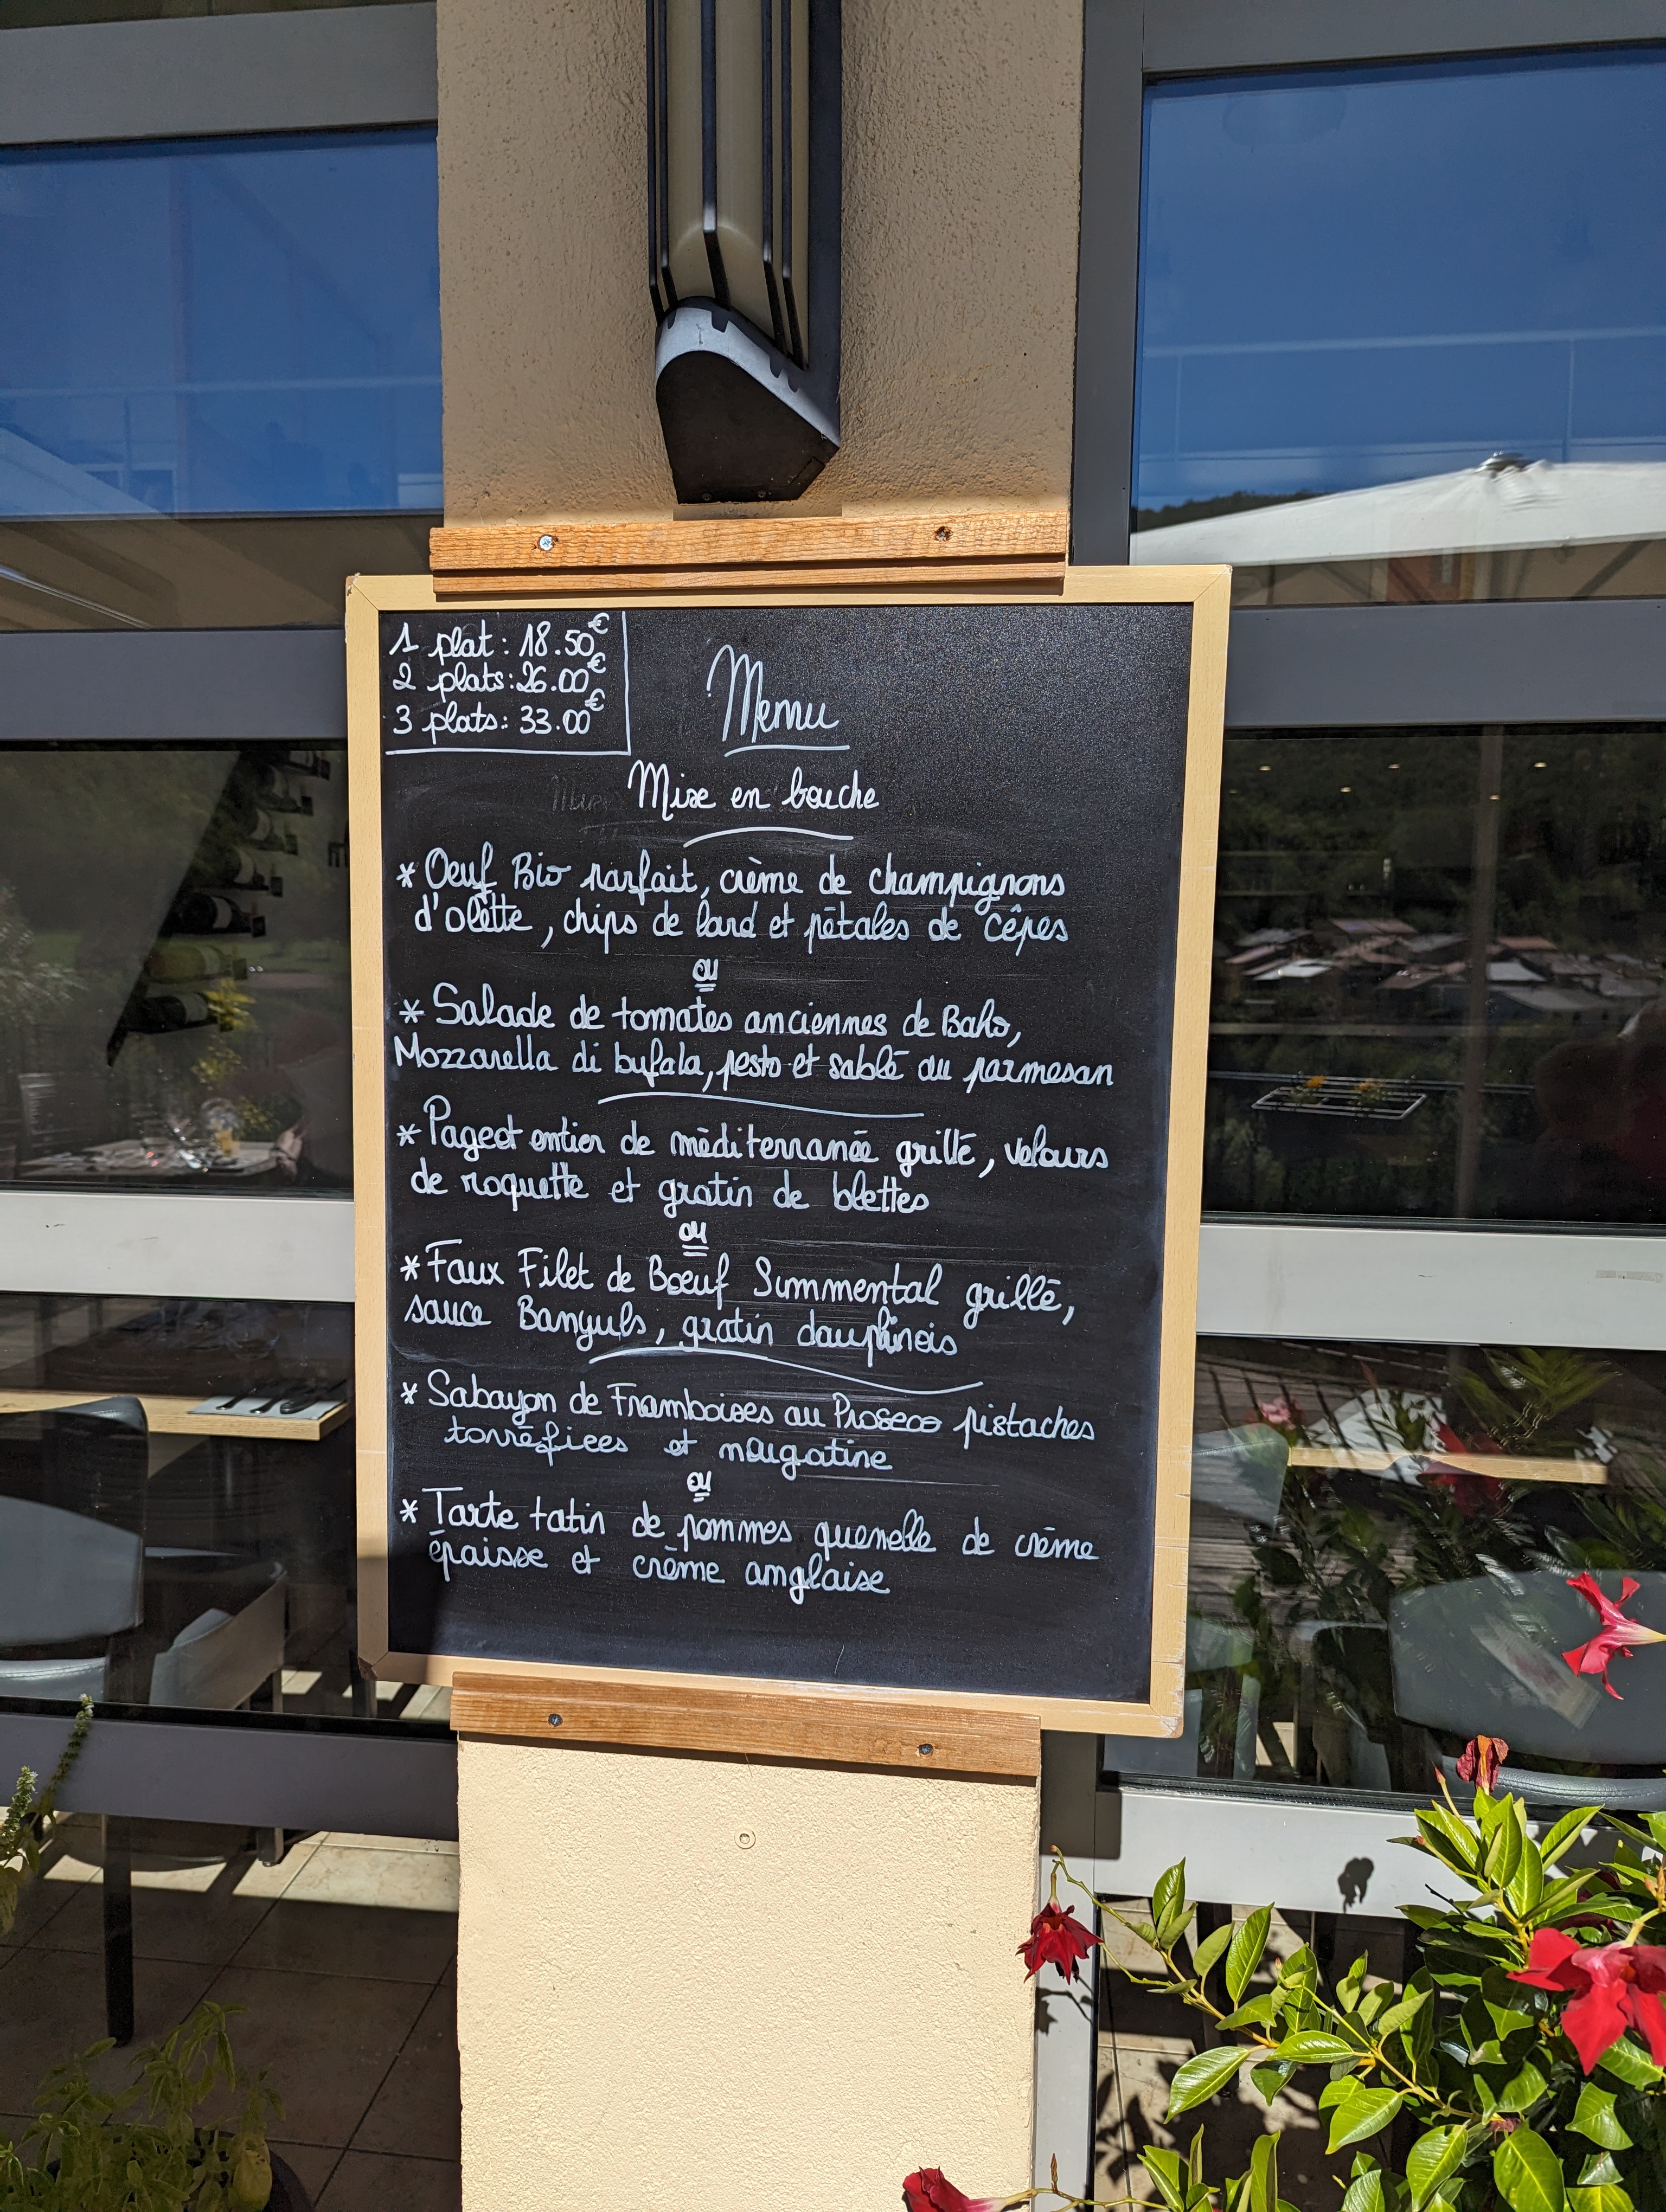 1 plat : 18.50€
2 plats : 26.00€
3 plats : 33.00€
Menu
Mise en bouche
* Oeuf Bio parfait, crème de champignons
d'olette, chips de lard et pétales de Cêpes
ou
* Salade de tomates anciennes de Baho,
Mozzarella di bufala, pesto et sablé au parmesan
* Pageot entier de méditerranée grillé, velours
de roquette et gratin de blettes
ou
* Faux Filet de Bœuf Simmental grillé,
sauce Banyuls, gratin dauphinois
* Sabayon de Framboises au Proseco pistaches
torréfiees et nougatine
ou
* Tarte tatin de pommes quenelle de crème
épaisse et crème anglaise